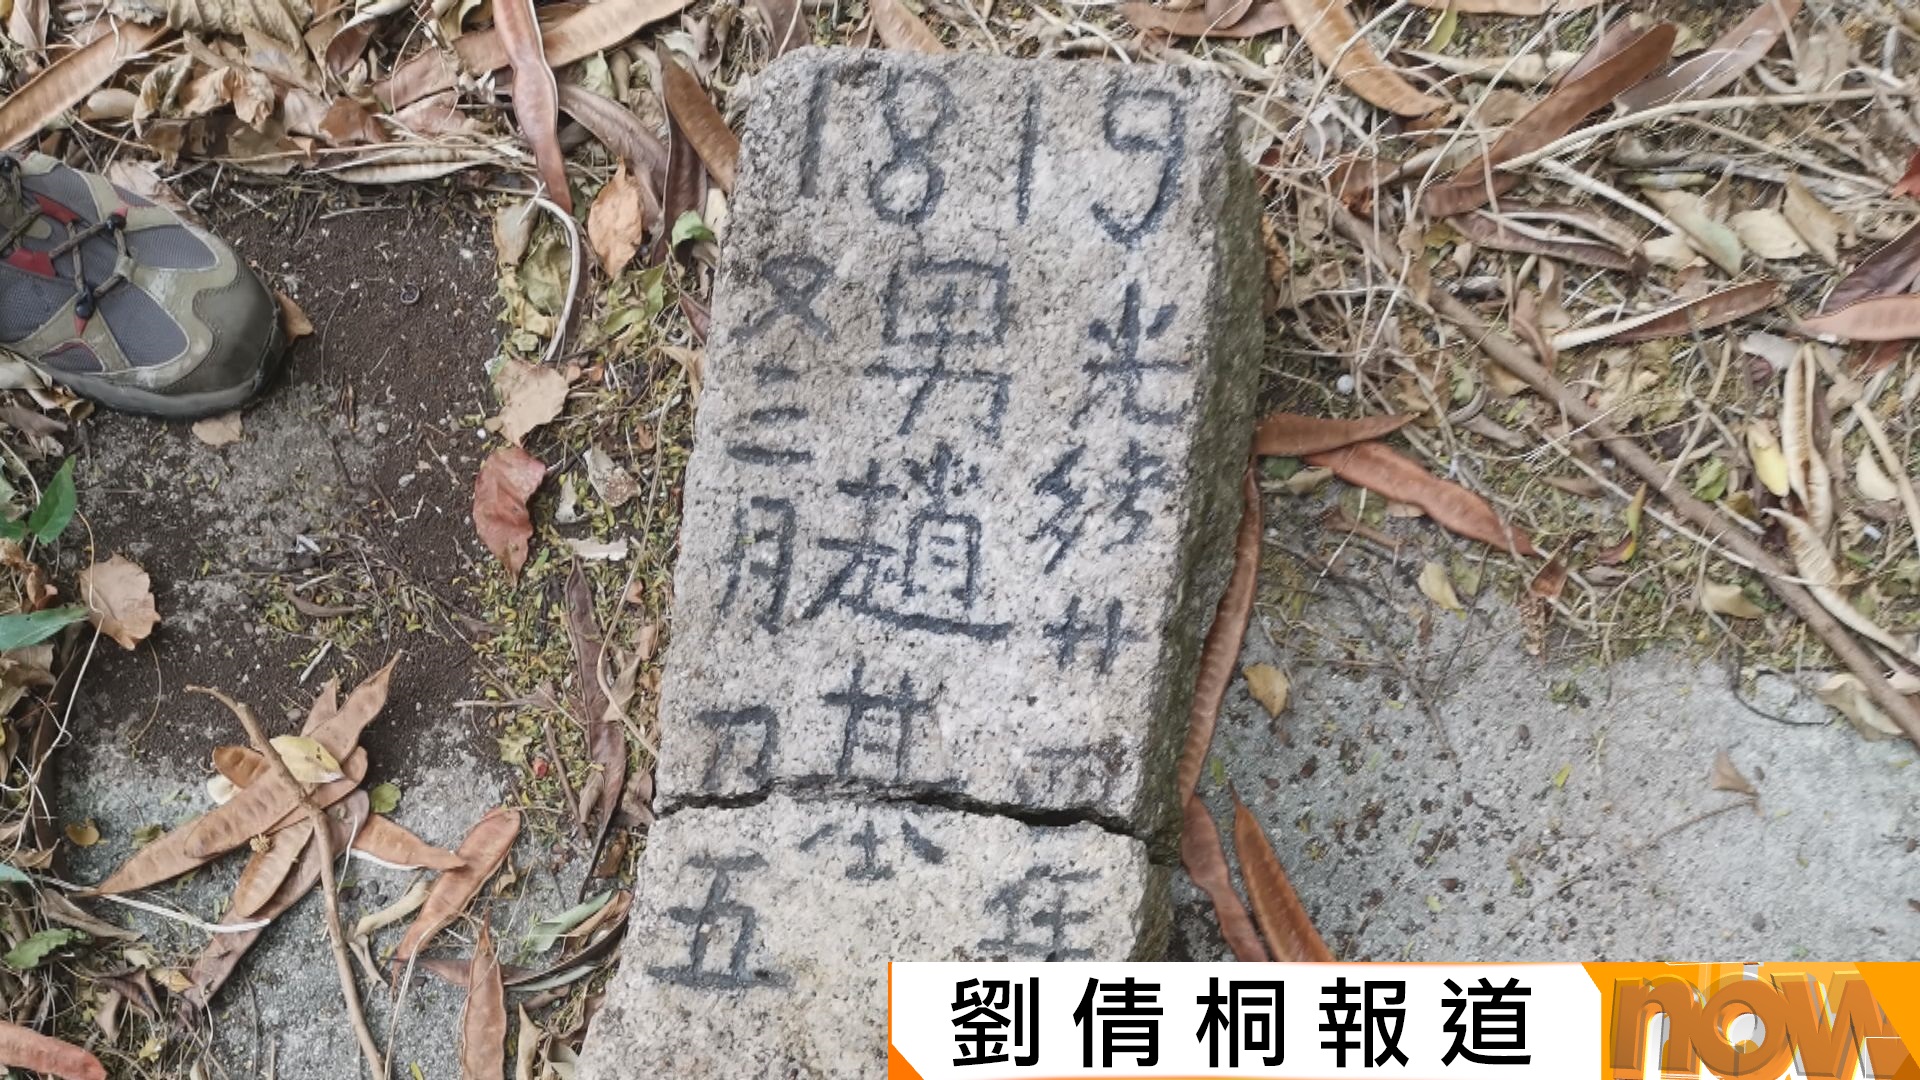 1819
光緒廿四年
男趙其
又三月刀五
劉倩桐報道
now